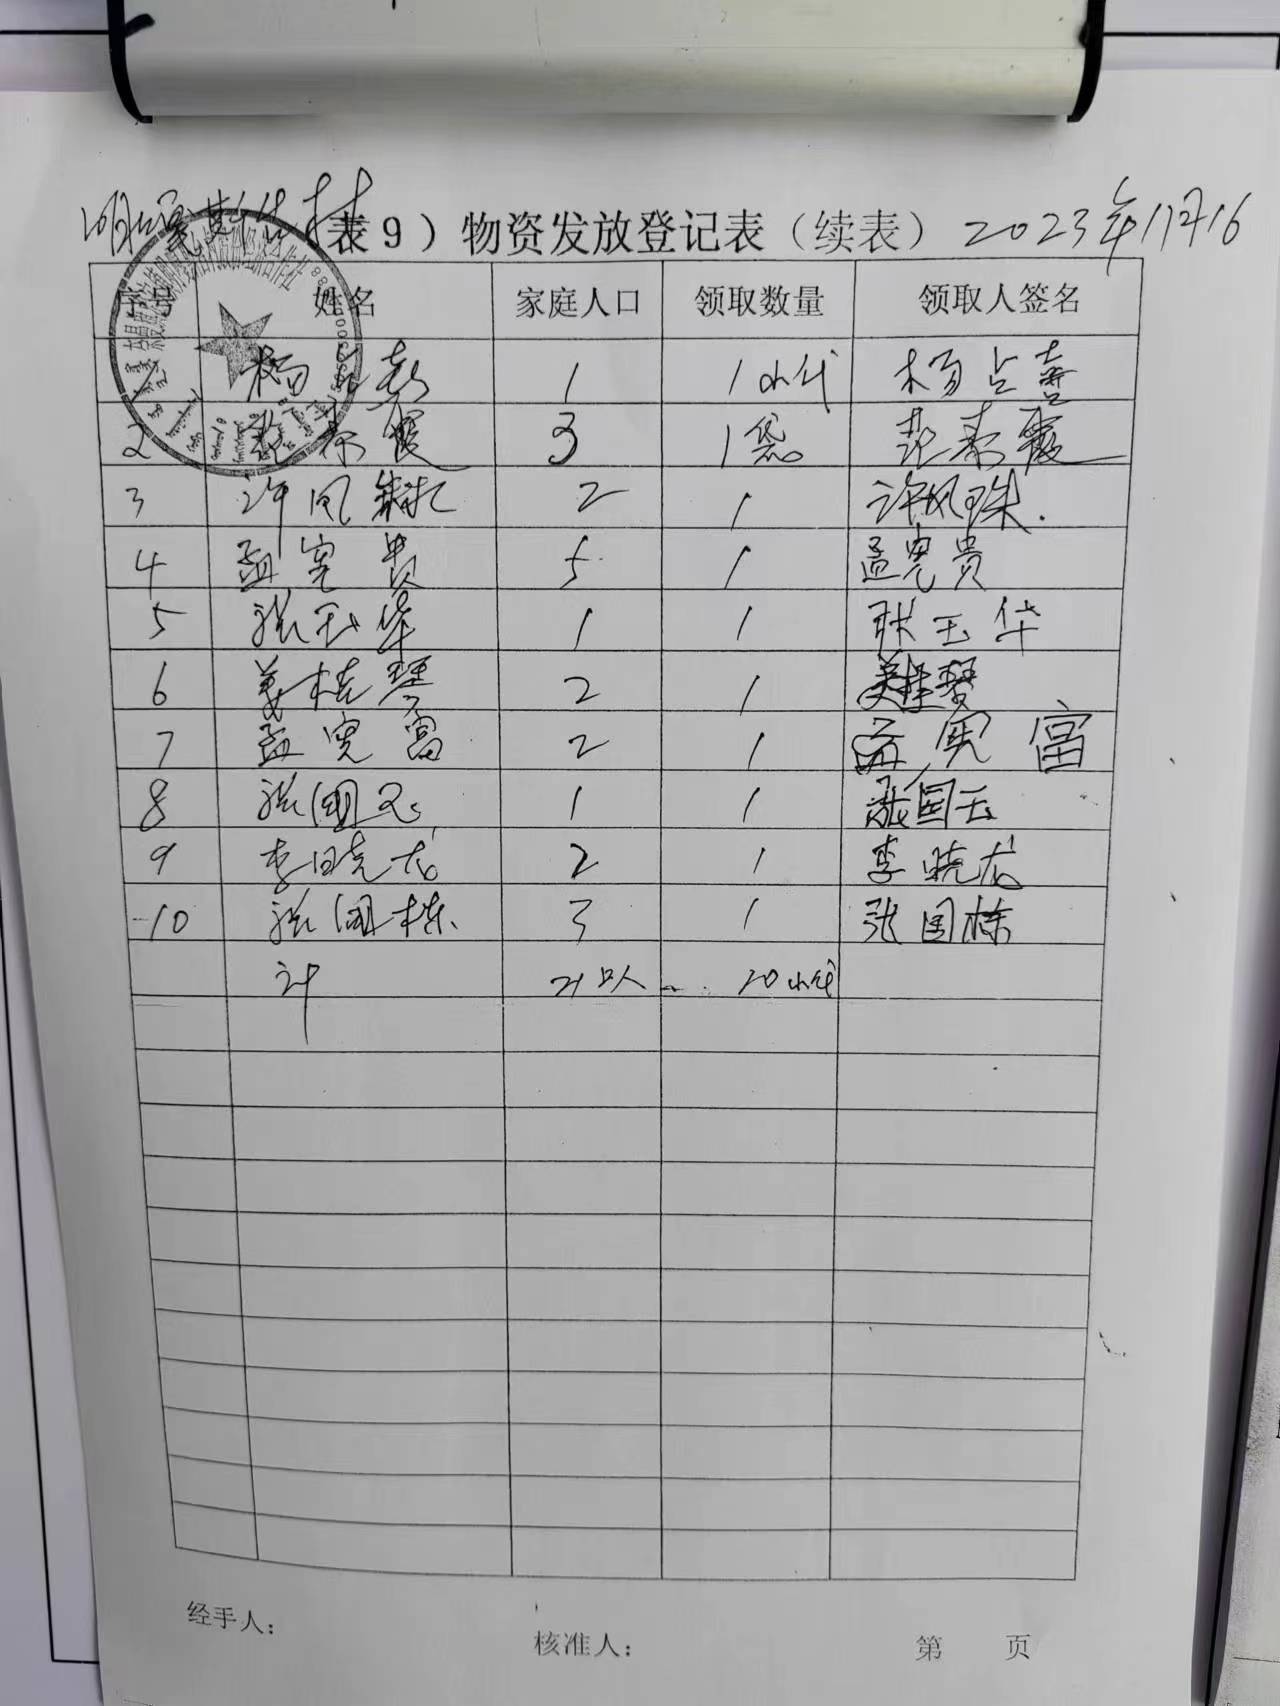 村（表9）物资发放登记表（续表） 2023年11月16
序号 姓名 家庭人口 领取数量 领取人签名
1 杨占喜 1 1小代 杨占喜
2 秦霞 3 1袋 秦霞
3 许凤珠 2 1 许凤珠.
4 孟宪贵 5 1 孟宪贵
5 张玉华 1 1 张玉华
6 姜桂琴 2 1 姜桂琴
7 孟宪富 2 1 孟宪富
8 张国玉 1 1 张国玉
9 李晓龙 2 1 李晓龙
10 张国栋 3 1 张国栋
计 21口人 10小代
经手人：
核准人：
第 页